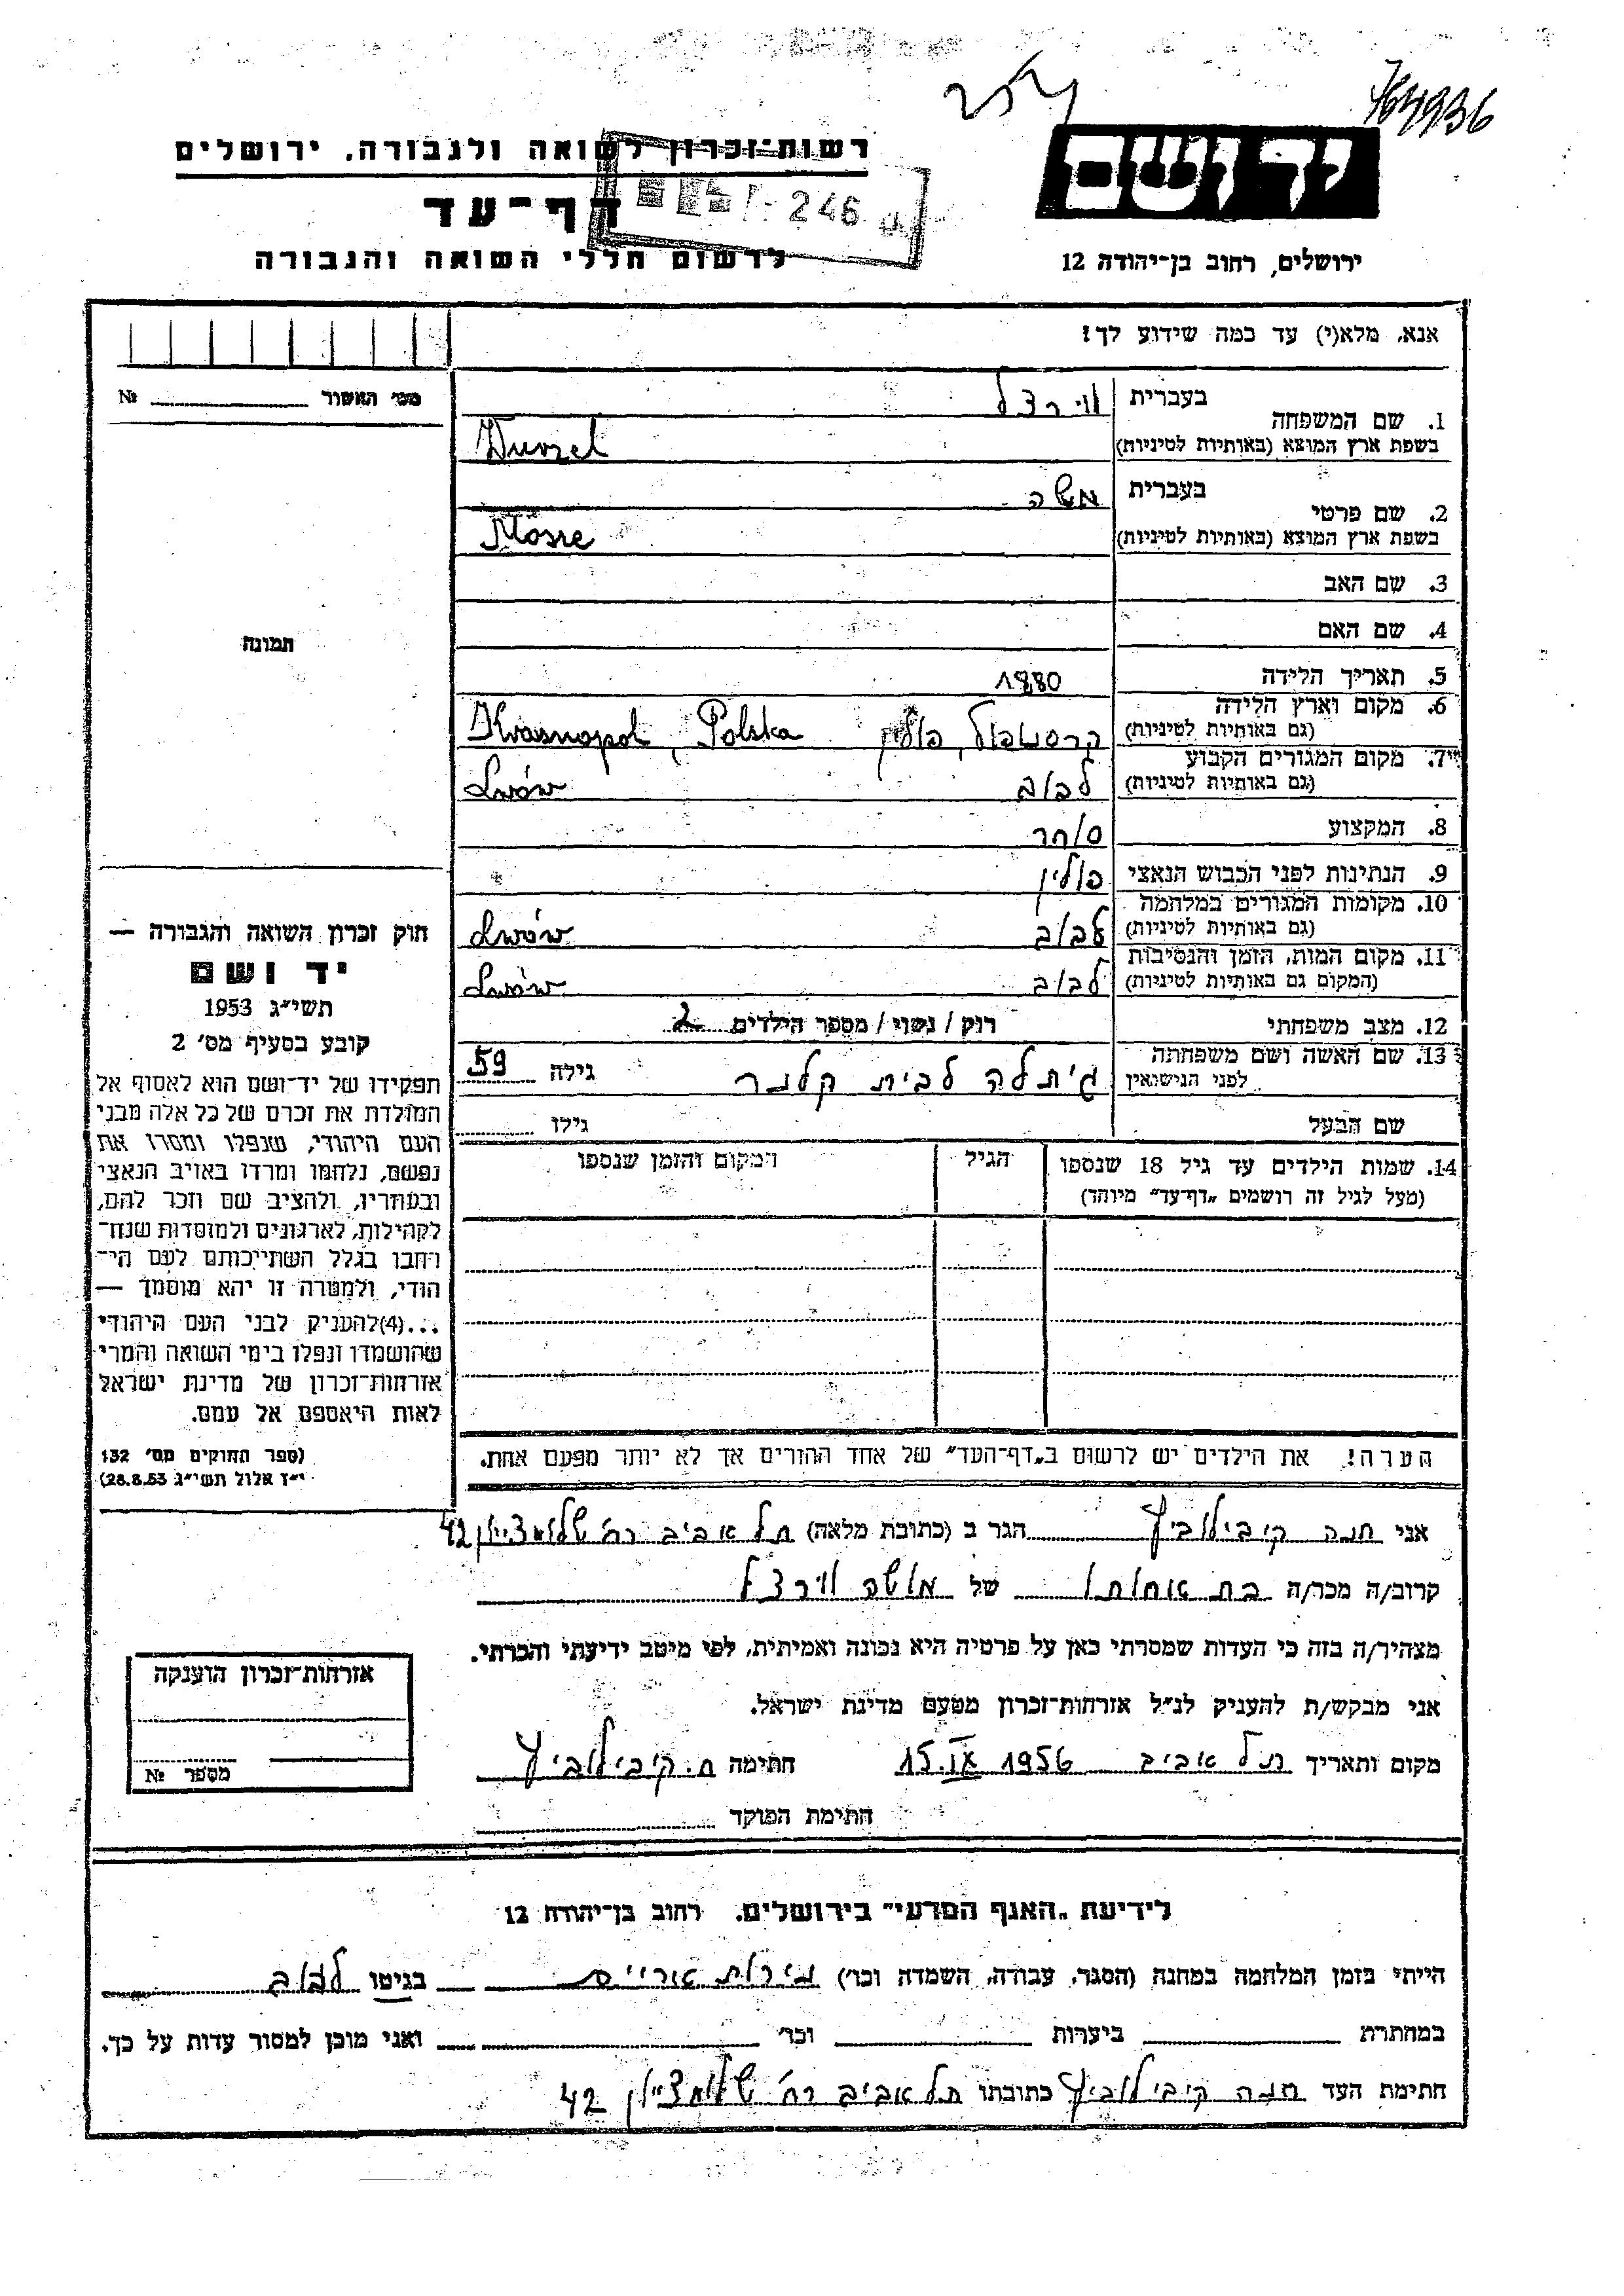 764936
רשות-זכרון לשואה ולגבורה. ירושלים
יד ושם
246
דף-עד
לרשום חללי השואה והגבורה
ירושלים, רחוב בן-יהודה 12
אנא, מלא(י) עד כמה שידוע לך!
מס׳ האשור № 
1. שם המשפחה
בעברית ווירצל
בשפת ארץ המוצא (באותיות לטיניות) Wurzel
2. שם פרטי
בעברית משה
בשפת ארץ המוצא (באותיות לטיניות) Mosze
3. שם האב
4. שם האם
תמונה
5. תאריך הלידה 1880
6. מקום וארץ הלידה
(גם באותיות לטיניות) קרסנופול, פולין Krasnopol, Polska
7. מקום המגורים הקבוע
(גם באותיות לטיניות) לבוב Lwów
8. המקצוע סוחר
9. הנתינות לפני הכבוש הנאצי פולין
10. מקומות המגורים במלחמה
(גם באותיות לטיניות) לבוב Lwów
11. מקום המות, הזמן והנסיבות
(המקום גם באותיות לטיניות) לבוב Lwów
12. מצב משפחתי רוק / נשוי / מספר הילדים 2
13. שם האשה ושם משפחתה
לפני הנישואין גיתלה לבית קלגר גילה 59
שם הבעל גילו
14. שמות הילדים עד גיל 18 שנספו הגיל המקום והזמן שנספו
(מעל לגיל זה רושמים „דף-עד״ מיוחד)
הערה! את הילדים יש לרשום ב„דף-העד״ של אחד ההורים אך לא יותר מפעם אחת.
חוק זכרון השואה והגבורה —
יד ושם
תשי״ג 1953
קובע בסעיף מס׳ 2
תפקידו של יד-ושם הוא לאסוף אל
המולדת את זכרם של כל אלה מבני
העם היהודי, שנפלו ומסרו את
נפשם, נלחמו ומרדו באויב הנאצי
ובעוזריו, ולהציב שם וזכר להם,
לקהילות, לארגונים ולמוסדות שנח־
רבו בגלל השתייכותם לעם הי־
הודי, ולמטרה זו יהא מוסמך —
...(4)להעניק לבני העם היהודי
שהושמדו ונפלו בימי השואה והמרי
אזרחות-זכרון של מדינת ישראל
לאות היאספם אל עמם.
(ספר החוקים מס׳ 132
י״ז אלול תשי״ג 28.8.53)
אני חנה קיבילוביץ הגר ב (כתובת מלאה) תל אביב רח׳ שלומציון 42
קרוב/ה מכר/ה בת אחותו של משה ווירצל
מצהיר/ה בזה כי העדות שמסרתי כאן על פרטיה היא נכונה ואמיתית, לפי מיטב ידיעתי והכרתי.
אני מבקש/ת להעניק לנ״ל אזרחות-זכרון מטעם מדינת ישראל.
מקום ותאריך תל אביב 15.IX 1956 חתימה ח. קיבילוביץ
חתימת הפוקד
אזרחות-זכרון הוענקה
מספר №
לידיעת „האגף המדעי״ בירושלים. רחוב בן-יהודה 12
הייתי בזמן המלחמה במחנה (הסגר, עבודה, השמדה וכו׳) בגיטו לבוב
במחתרת ביערות וכו׳ ואני מוכן למסור עדות על כך.
חתימת העד חנה קיבילוביץ כתובתו תל אביב רח׳ שלומציון 42